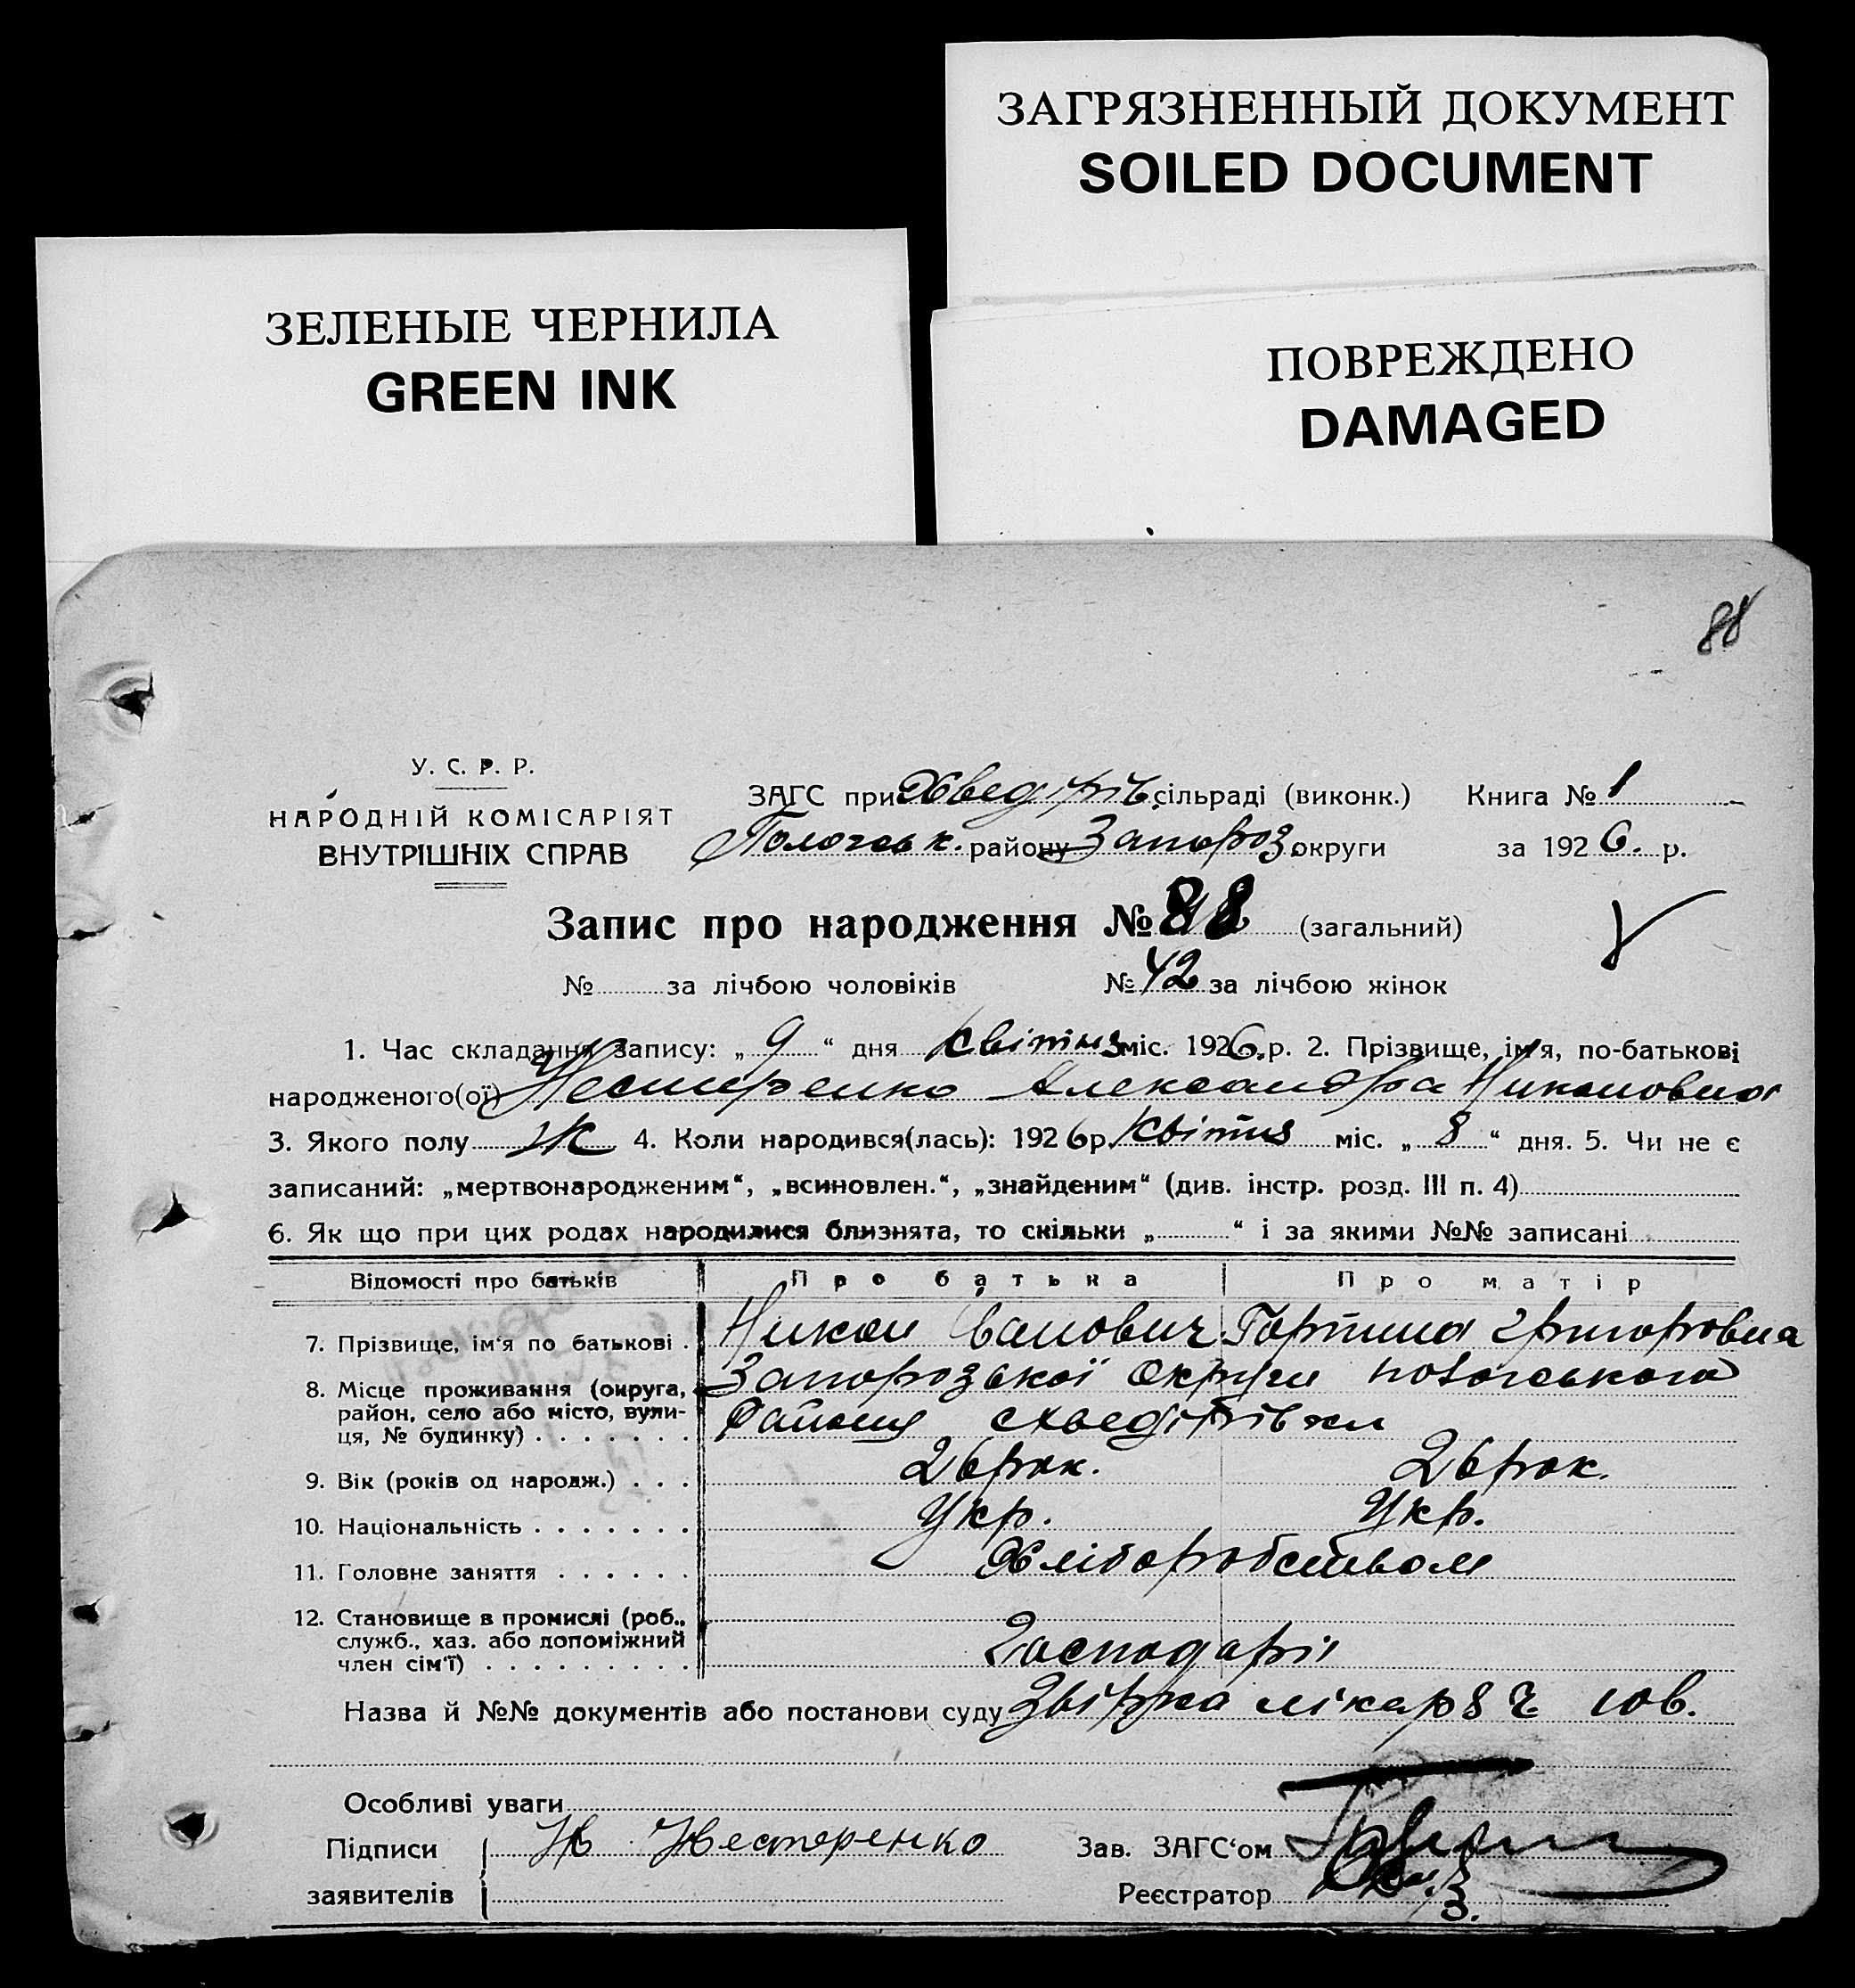 ЗАГРЯЗНЕННЫЙ ДОКУМЕНТ
SOILED DOCUMENT
ЗЕЛЕНЫЕ ЧЕРНИЛА
GREEN INK
ПОВРЕЖДЕНО
DAMAGED
88
У. С. Р. Р.
НАРОДНІЙ КОМІСАРІЯТ
ВНУТРІШНІХ СПРАВ
ЗАГС при Хведірів. сільраді (виконк.) Книга № 1
Пологськ. району Запороз. округи за 1926. р.
Запис про народження № 88 (загальний)
№ за лічбою чоловіків № 42 за лічбою жінок
1. Час складання запису: „ 9 “ дня квітня міс. 1926. р. 2. Прізвище, ім'я, по-батькові
народженого(ої) Нестиренко Александра Никоновна
3. Якого полу Ж 4. Коли народився(лась): 1926 р. квітня міс. „ 8 “ дня. 5. Чи не є
записаний: „мертвонародженим“, „всиновлен.“, „знайденим“ (див. інстр. розд. III п. 4)
6. Як що при цих родах народилися близнята, то скільки „ “ і за якими №№ записані
Відомості про батьків Про батька Про матір
7. Прізвище, ім'я по батькові . Никон Іванович Горпина Григоровна
8. Місце проживання (округа, Запорозької округи пологського
район, село або місто, вули- району с хведірівки
ця, № будинку) . . . . . . .
9. Вік (років од народж.) . . . 26 рок. 26 рок.
10. Національність . . . . . . . Укр. Укр.
11. Головне заняття . . . . . . Хліборобством
12. Становище в промислі (роб.,
служб., хаз. або допоміжний
член сім'ї) . . . . . . . . . Господарі
Назва й №№ документів або постанови суду лікаря
Особливі уваги
Підписи Н Нестеренко Зав. ЗАГС'ом
заявителів Реєстратор